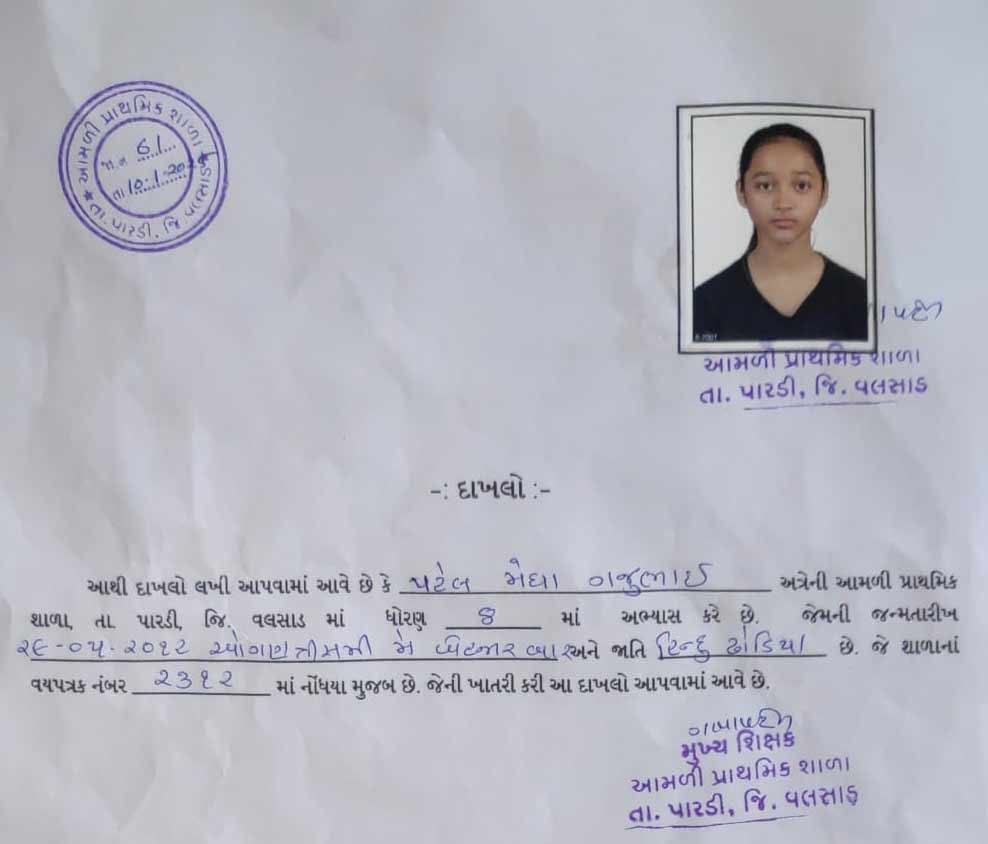 આમળી પ્રાથમિક શાળા
જા.નં 61
તા 10-1-20
તા. પારડી. જિ. વલસાડ
આમળી પ્રાથમિક શાળા
તા. પારડી, જિ. વલસાડ
-: દાખલો :-
આથી દાખલો લખી આપવામાં આવે છે કે પટેલ મેઘા રાજુભાઈ અત્રેની આમળી પ્રાથમિક
શાળા, તા. પારડી, જિ. વલસાડ માં ધોરણ ૪ માં અભ્યાસ કરે છે. જેમની જન્મતારીખ
૨૯-૦૫-૨૦૧૨ ઓગણત્રીસમી મે બેહજાર બાર અને જાતિ હિન્દુ ઢોડિયા છે. જે શાળાનાં
વયપત્રક નંબર ૨૩૧૨ માં નોંધયા મુજબ છે. જેની ખાતરી કરી આ દાખલો આપવામાં આવે છે.
મુખ્ય શિક્ષક
આમળી પ્રાથમિક શાળા
તા. પારડી, જિ. વલસાડ